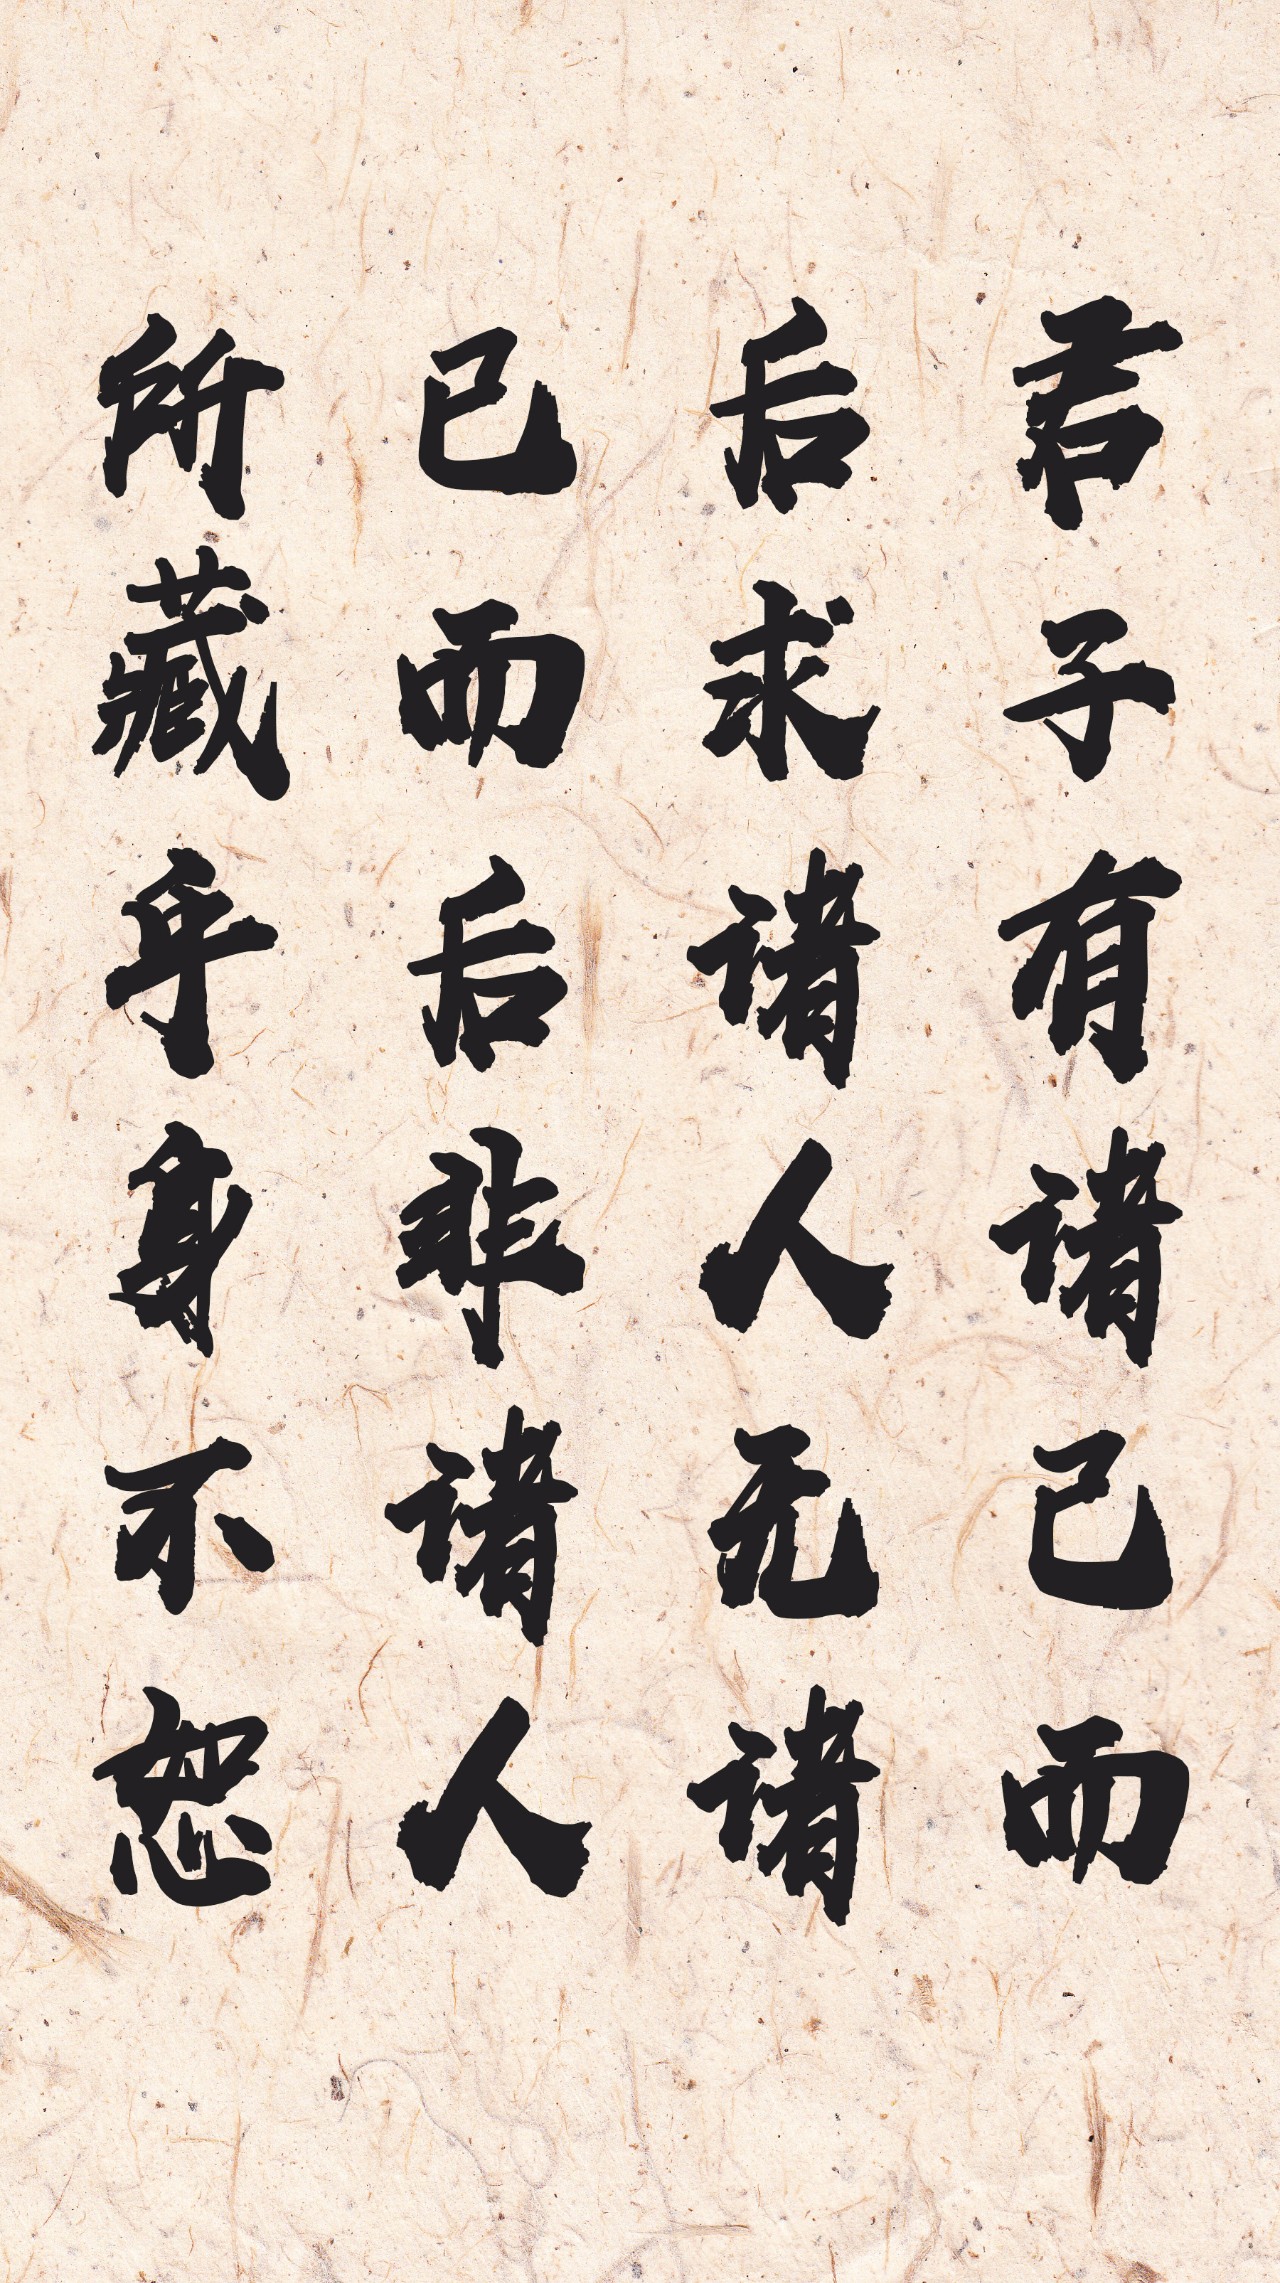 君子有诸己而
后求诸人无诸
已而后非诸人
所藏乎身不恕